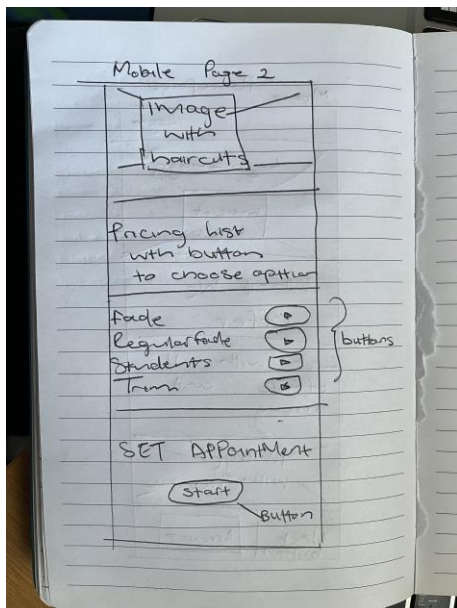 Mobile Page 2
Image
with
haircuts
Pricing list
with button
to choose option
Fade
Regular fade
Students
Trim
buttons
SET APPointMent
Start
Button